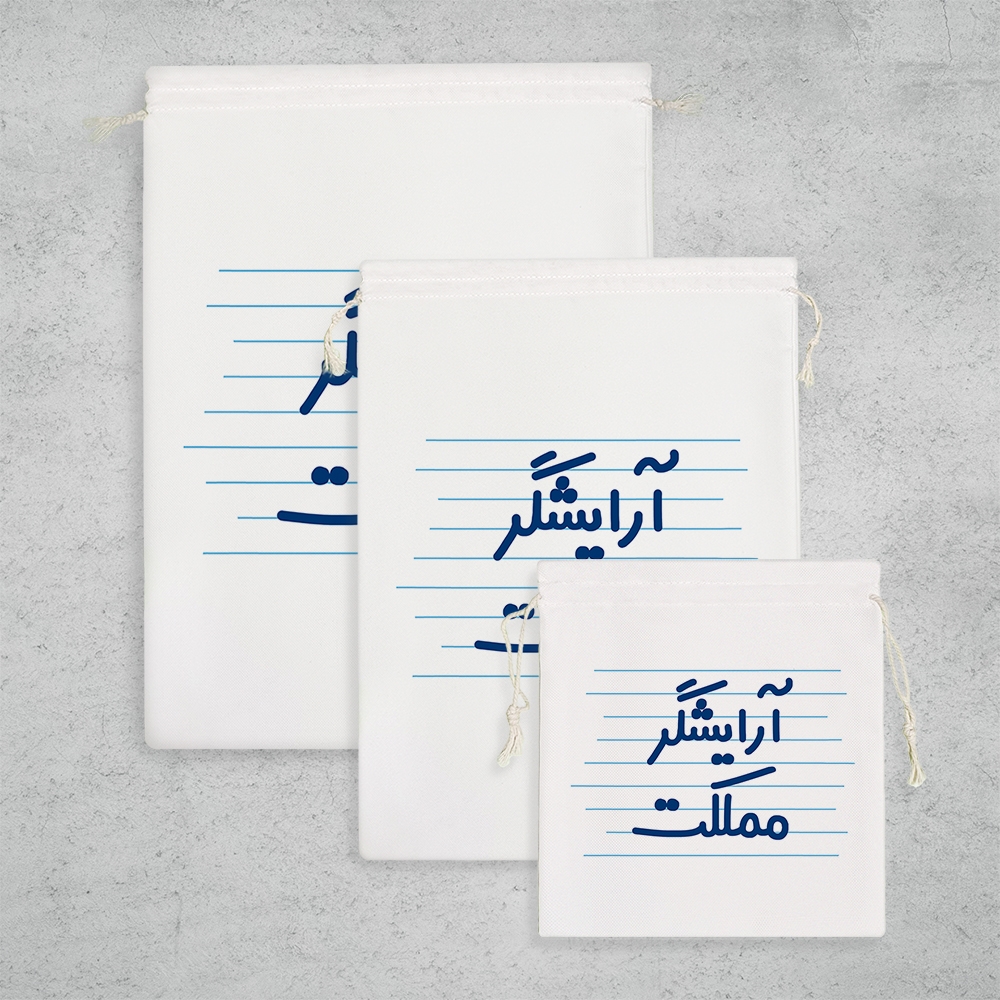 آرایشگر
آرایشگر
مملکت